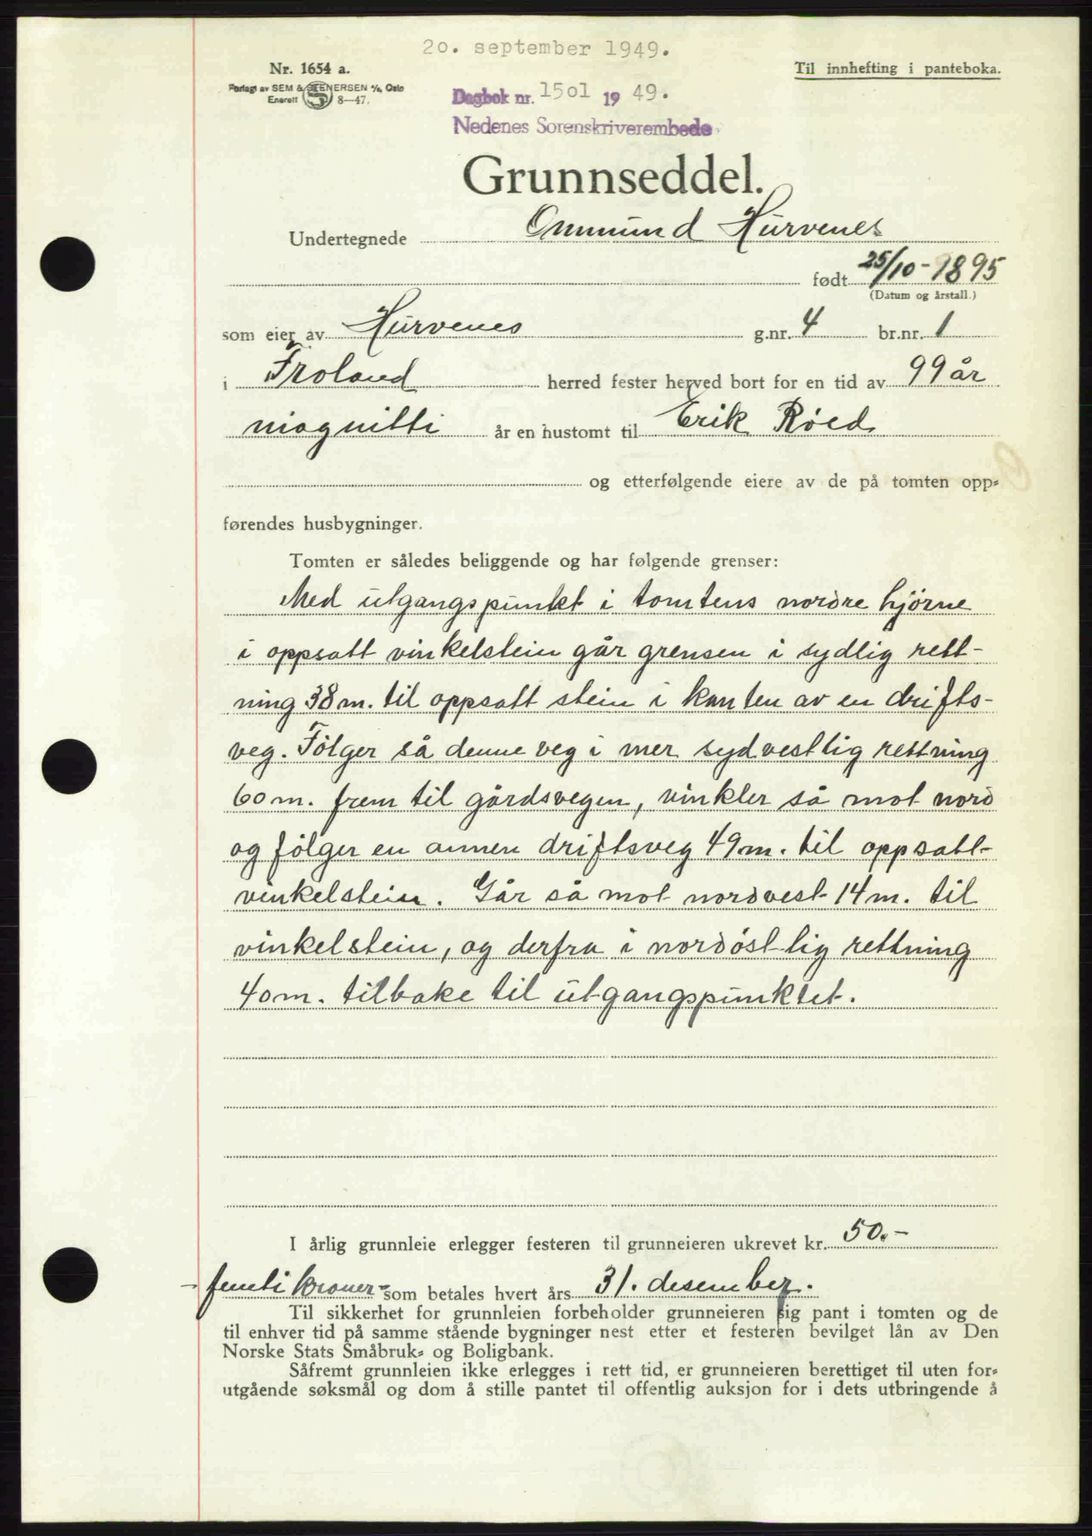 20. september 1949.
Nr. 1654 a.
Til innhefting i panteboka.
Forlagt av SEM & STENERSEN A/S, Oslo
Enerett 8—47.
Dagbok nr. 1501 19 49.
Nedenes Sorenskriverembede
Grunnseddel.
Undertegnede Ommund Hurvenes
født 25/10-1895
(Datum og årstall.)
som eier av Hurvenes g.nr. 4 br.nr. 1
i Froland herred fester herved bort for en tid av 99 år
niognitti år en hustomt til Erik Røed
og etterfølgende eiere av de på tomten opp-
førendes husbygninger.
Tomten er således beliggende og har følgende grenser:
Med utgangspunkt i tomtens nordre hjørne
i oppsatt vinkelstein går grensen i sydlig rett-
ning 38 m. til oppsatt stein i kanten av en drifts-
veg. Følger så denne veg i mer sydvestlig rettning
60 m. frem til gårdsvegen, vinkler så mot nord
og følger en annen driftsveg 49 m. til oppsatt
vinkelstein. Går så mot nordvest 14 m. til
vinkelstein, og derfra i nordøstlig rettning
40 m. tilbake til utgangspunktet.
I årlig grunnleie erlegger festeren til grunneieren ukrevet kr. 50.-
- femti kroner - som betales hvert års 31. desember.
Til sikkerhet for grunnleien forbeholder grunneieren sig pant i tomten og de
til enhver tid på samme stående bygninger nest etter et festeren bevilget lån av Den
Norske Stats Småbruk- og Boligbank.
Såfremt grunnleien ikke erlegges i rett tid, er grunneieren berettiget til uten for-
utgående søksmål og dom å stille pantet til offentlig auksjon for i dets utbringende å